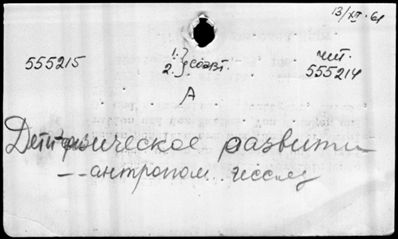 13/XII-61
555215 1.} 2.} соавт. чит. 555214
А
Дети-физическое развити
--антропом. исслед